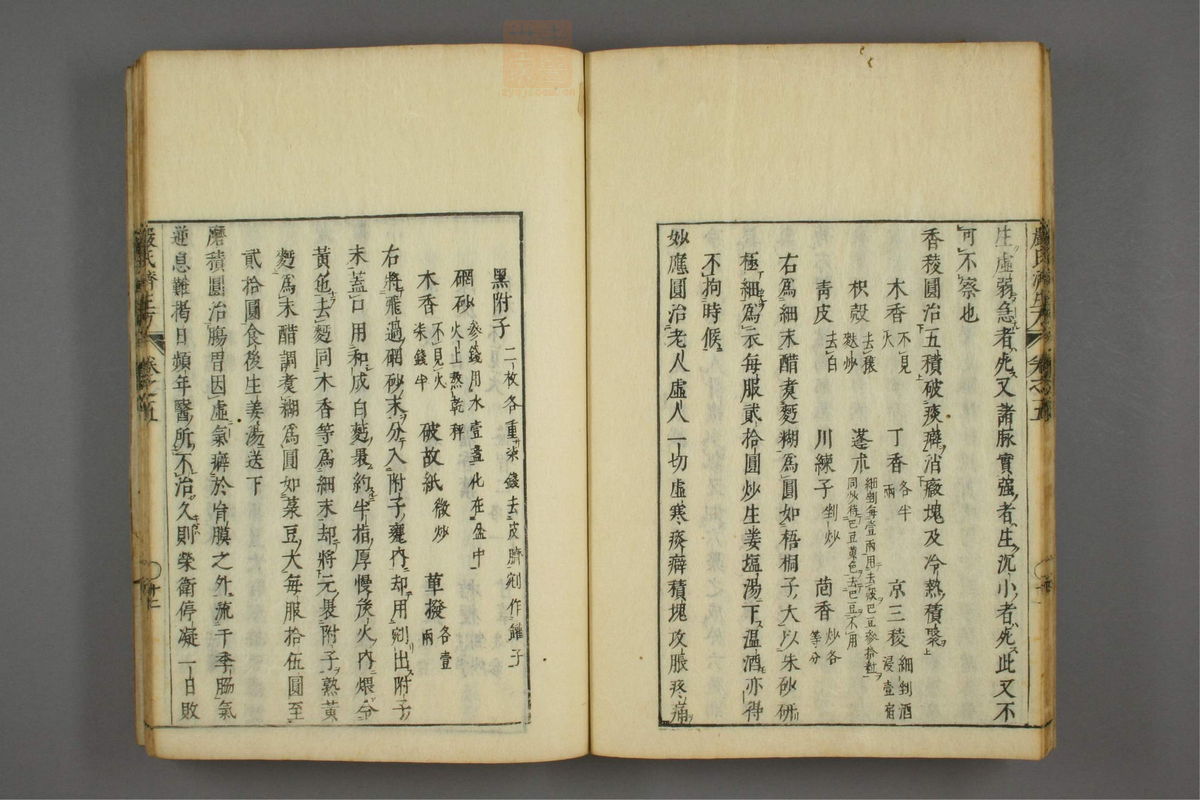 生虛弱急者死又諸脉實强者生沉小者死此又不
可不察也
香稜圓治五積破痰癖消癥塊及冷熱積聚
木香不見火 丁香各半兩 京三稜細剉酒浸壹宿
枳殼去穰麩炒 蓬朮細剉每壹兩用去殼巴豆參拾粒同炒待巴豆黃色去巴豆不用
靑皮去白 川練子剉炒 茴香炒各等分
右爲細末醋煑麪糊爲圓如梧桐子大以朱砂研
極細爲衣每服貳拾圓炒生姜塩湯下溫酒亦得
不拘時候
妙應圓治老人虛人一切虛寒痰癖積塊攻脹疼痛
嚴氏濟生方 卷之五
黑附子二枚各重柒錢去皮臍剜作罐子
硇砂參錢用水壹盞化在盆中火上熬乾秤
木香不見火柒錢半 破故紙微炒 蓽撥各壹兩
右將飛過硇砂末分入附子甕內却用剜出附子
末蓋口用和成白麪裹約半指厚慢灰火內煨令
黃色去麪同木香等爲細末却將元裹附子熟黃
麪爲末醋調煑糊爲圓如菉豆大每服拾伍圓至
貳拾圓食後生姜湯送下
磨積圓治腸胃因虛氣癖於肓膜之外流于季脇氣
逆息難撐日頻年醫所不治久則榮衛停凝一日敗
嚴氏濟生方 卷之五 十二